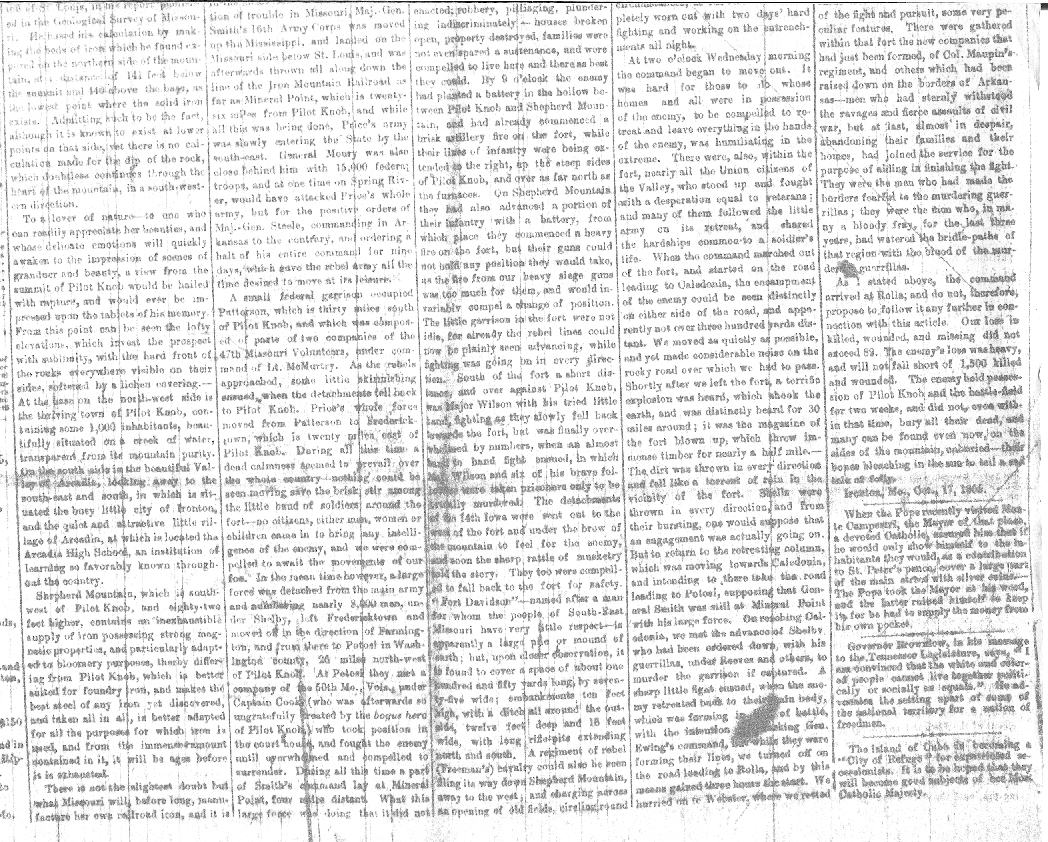 ed in the Geological Survey of Missou-
He based his calculation by mak-
ing the beds of iron which he found ex-
on the northern side of the moun-
tain, at a distance of 141 feet below
the summit and 440 above the base, as
the lowest point where the solid iron
exists. Admitting such to be the fact,
although it is known to exist at lower
points on that side, yet there is no cal-
culation made for the dip of the rock,
which doubtless continues through the
heart of the mountain, in a south-west-
ern direction.
To a lover of nature—to one who
can readily appreciate her bounties, and
whose delicate emotions will quickly
awaken to the impression of scenes of
grandeur and beauty, a view from the
summit of Pilot Knob would be hailed
with rapture, and would ever be im-
pressed upon the tablets of his memory.
From this point can be seen the lofty
elevations, which invest the prospect
with sublimity, with the hard front of
the rocks everywhere visible on their
sides, softened by a lichen covering.—
At the base on the north-west side is
the thriving town of Pilot Knob, con-
taining some 1,000 inhabitants, beau-
tifully situated on a creek of water,
transparent from its mountain purity.
On the south side is the beautiful Val-
ley of Arcadia, looking away to the
south-east and south, in which is sit-
uated the busy little city of Ironton,
and the quiet and attractive little vil-
lage of Arcadia, at which is located the
Arcadia High School, an institution of
learning so favorably known through-
out the country.
Shepherd Mountain, which is south-
west of Pilot Knob, and eighty-two
feet higher, contains an inexhaustible
supply of iron possessing strong mag-
netic properties, and particularly adapt-
ed to bloomery purposes, therby differ-
ing from Pilot Knob, which is better
suited for foundry iron, and makes the
best steel of any iron yet discovered,
and taken all in all, is better adapted
for all the purposes for which iron is
used, and from the immense amount
contained in it, it will be ages before
it is exhausted.
There is not the slightest doubt but
what Missouri will, before long, manu-
facture her own railroad icon, and it is
tion of trouble in Missouri, Maj.-Gen.
Smith's 16th Army Corps was moved
up the Mississippi, and landed on the
Missouri side below St. Louis, and was
afterwards thrown all along down the
line of the Iron Mountain Railroad as
far as Mineral Point, which is twenty-
six miles from Pilot Knob, and while
all this was being done, Price's army
was slowly entering the State by the
south-east. General Moury was also
close behind him with 15,000 federal
troops, and at one time on Spring Riv-
er, would have attacked Price's whole
army, but for the positive orders of
Maj.-Gen. Steele, commanding in Ar-
kansas to the contrary, and ordering a
halt of his entire command for nine
days, which gave the rebel army all the
time desired to move at its leisure.
A small federal garrison occupied
Patterson, which is thirty miles south
of Pilot Knob, and which was compos-
ed of parts of two companies of the
47th Missouri Volunteers, under com-
mand of Lt. McMurtry. As the rebels
approached, some little skirmishing
ensued, when the detachments fell back
to Pilot Knob. Price's whole force
moved from Patterson to Frederick-
town, which is twenty miles east of
Pilot Knob. During all this time a
dead calmness seemed to prevail over
the whole country—nothing could be
seen moving save the brisk stir among
the little band of soldiers around the
fort—no citizens, either man, women or
children came in to bring any intelli-
gence of the enemy, and we were com-
pelled to await the movements of our
foe. In the mean time however, a large
force was detached from the main army
and numbering nearly 8,000 men, un-
der Shelby, left Fredericktown and
moved off in the direction of Farming-
ton, and from there to Potosi in Wash-
ington county, 26 miles north-west
of Pilot Knob. At Potosi they met a
company of the 50th Mo., Vols., under
Captain Cook (who was afterwards so
ungratefully treated by the bogus hero
of Pilot Knob,) who took position in
the court house, and fought the enemy
until overwhelmed and compelled to
surrender. During all this time a part
of Smith's command lay at Mineral
Point, four miles distant. What this
large force was doing that it did not
enacted; robbery, pillaging, plunder-
ing indiscriminately—houses broken
open, property destroyed, families were
not even spared a sustenance, and were
compelled to live here and there as best
they could. By 9 o'clock the enemy
had planted a battery in the hollow be-
tween Pilot Knob and Shepherd Moun-
tain, and had already commenced a
brisk artillery fire on the fort, while
their lines of infantry were being ex-
tended to the right, up the steep sides
of Pilot Knob, and over as far north as
the furnace. On Shepherd Mountain
they had also advanced a portion of
their infantry with a battery, from
which place they commenced a heavy
fire on the fort, but their guns could
not hold any position they would take,
as the fire from our heavy siege guns
was too much for them, and would in-
variably compel a change of position.
The little garrison in the fort were not
idle, for already the rebel lines could
now be plainly seen advancing, while
fighting was going on in every direc-
tion. South of the fort a short dis-
tance, and over against Pilot Knob,
was Major Wilson with his tried little
band, fighting as they slowly fell back
towards the fort, but was finally over-
whelmed by numbers, when an almost
hand to hand fight ensued, in which
Maj. Wilson and six of his brave fol-
lowers were taken prisoners only to be
brutally murdered. The detachments
of the 14th Iowa were sent out to the
west of the fort and under the brow of
the mountain to feel for the enemy,
and soon the sharp rattle of musketry
told the story. They too were compell-
ed to fall back to the fort for safety.
"Fort Davidson"—named after a man
for whom the people of South-East
Missouri have very little respect—is
apparently a large pile or mound of
earth; but, upon closer observation, it
is found to cover a space of about one
hundred and fifty yards long, by seven-
ty-five wide; embankments ten feet
high, with a ditch all around the out-
side, twelve feet deep and 18 feet
wide, with long rifle pits extending
north and south.
A regiment of rebel
(Freeman's) cavalry could also be seen
filing its way down Shepherd Mountain,
away to the west; and charging across
an opening of old fields, circling round
pletely worn out with two days' hard
fighting and working on the entrench-
ments all night.
At two o'clock Wednesday morning
the command began to move out. It
was hard for those to do whose
homes and all were in possession
of the enemy, to be compelled to re-
treat and leave everything in the hands
of the enemy, was humiliating in the
extreme. There were, also, within the
fort, nearly all the Union citizens of
the Valley, who stood up and fought
with a desperation equal to veterans;
and many of them followed the little
army on its retreat, and shared
the hardships common to a soldier's
life. When the command marched out
of the fort, and started on the road
leading to Caledonia, the encampment
of the enemy could be seen distinctly
on either side of the road, and appa-
rently not over three hundred yards dis-
tant. We moved as quickly as possible,
and yet made considerable noise on the
rocky road over which we had to pass.
Shortly after we left the fort, a terrific
explosion was heard, which shook the
earth, and was distinctly heard for 30
miles around; it was the magazine of
the fort blown up, which threw im-
mense timber for nearly a half mile.—
The dirt was thrown in every direction
and fell like a torrent of rain in the
vicinity of the fort. Shells were
thrown in every direction, and from
their bursting, one would suppose that
an engagement was actually going on.
But to return to the retreating column,
which was moving towards Caledonia,
and intending to there take the road
leading to Potosi, supposing that Gen-
eral Smith was still at Mineral Point
with his large force. On reaching Cal-
edonia, we met the advance of Shelby
who had been ordered down, with his
guerrillas, under Reeves and others, to
murder the garrison if captured. A
sharp little fight ensued, when the ene-
my retreated back to their main body,
which was forming in of battle
with the intention of Gen.
Ewing's command, but while they were
forming their lines, we turned off on
the road leading to Rolla, and by this
means gained three hours the start. We
hurried on to Webster, where we rested
of the fight and pursuit, some very pe-
culiar features. There were gathered
within that fort the new companies that
had just been formed, of Col. Maupin's
regiment, and others which had been
raised down on the borders of Arkan-
sas—men who had sternly withstood
the ravages and fierce assaults of civil
war, but at last, almost in despair,
abandoning their families and their
homes, had joined the service for the
purpose of aiding in finishing the fight.
They were the men who had made the
borders fearful to the murdering guer-
rillas; they were the men who, in ma-
ny a bloody fray, for the last three
years, had watered the bridle-paths of
that region with the blood of the mur-
derous guerrillas.
As I stated above, the command
arrived at Rolla; and do not, therefore,
propose to follow it any further in con-
nection with this article. Our loss in
killed, wounded, and missing did not
exceed 89. The enemy's loss was heavy,
and will not fall short of 1,500 killed
and wounded. The enemy held posses-
sion of Pilot Knob and the battle-field
for two weeks, and did not, even with-
in that time, bury all their dead, and
many can be found even now, on the
sides of the mountain, unburied—their
bones bleaching in the sun to tell a sad
tale of folly.
Ironton, Mo., Oct., 17, 1865.
When the Pope recently visited
the Mayor of that place,
a devoted Catholic, assured him that if
he would only show himself to the in-
habitants they would, as a contribution
to St. Peter's pence, cover a large part
of the main street with silver coins.—
The Pope took the Mayor at his word,
and the latter ruined himself to keep
it, for he had to supply the money from
his own pocket.
Governor Brownlow, in his message
to the Tennessee Legislature, says, "I
am convinced that the white and color-
ed people cannot live together politi-
cally or socially as equals." He ad-
vocates the setting apart of some of
the national territory for a nation of
freedmen.
The Island of Cuba is becoming a
"City of Refuge" for expatriated se-
cessionists. It is to be hoped that they
will become good subjects of her Most
Catholic Majesty.